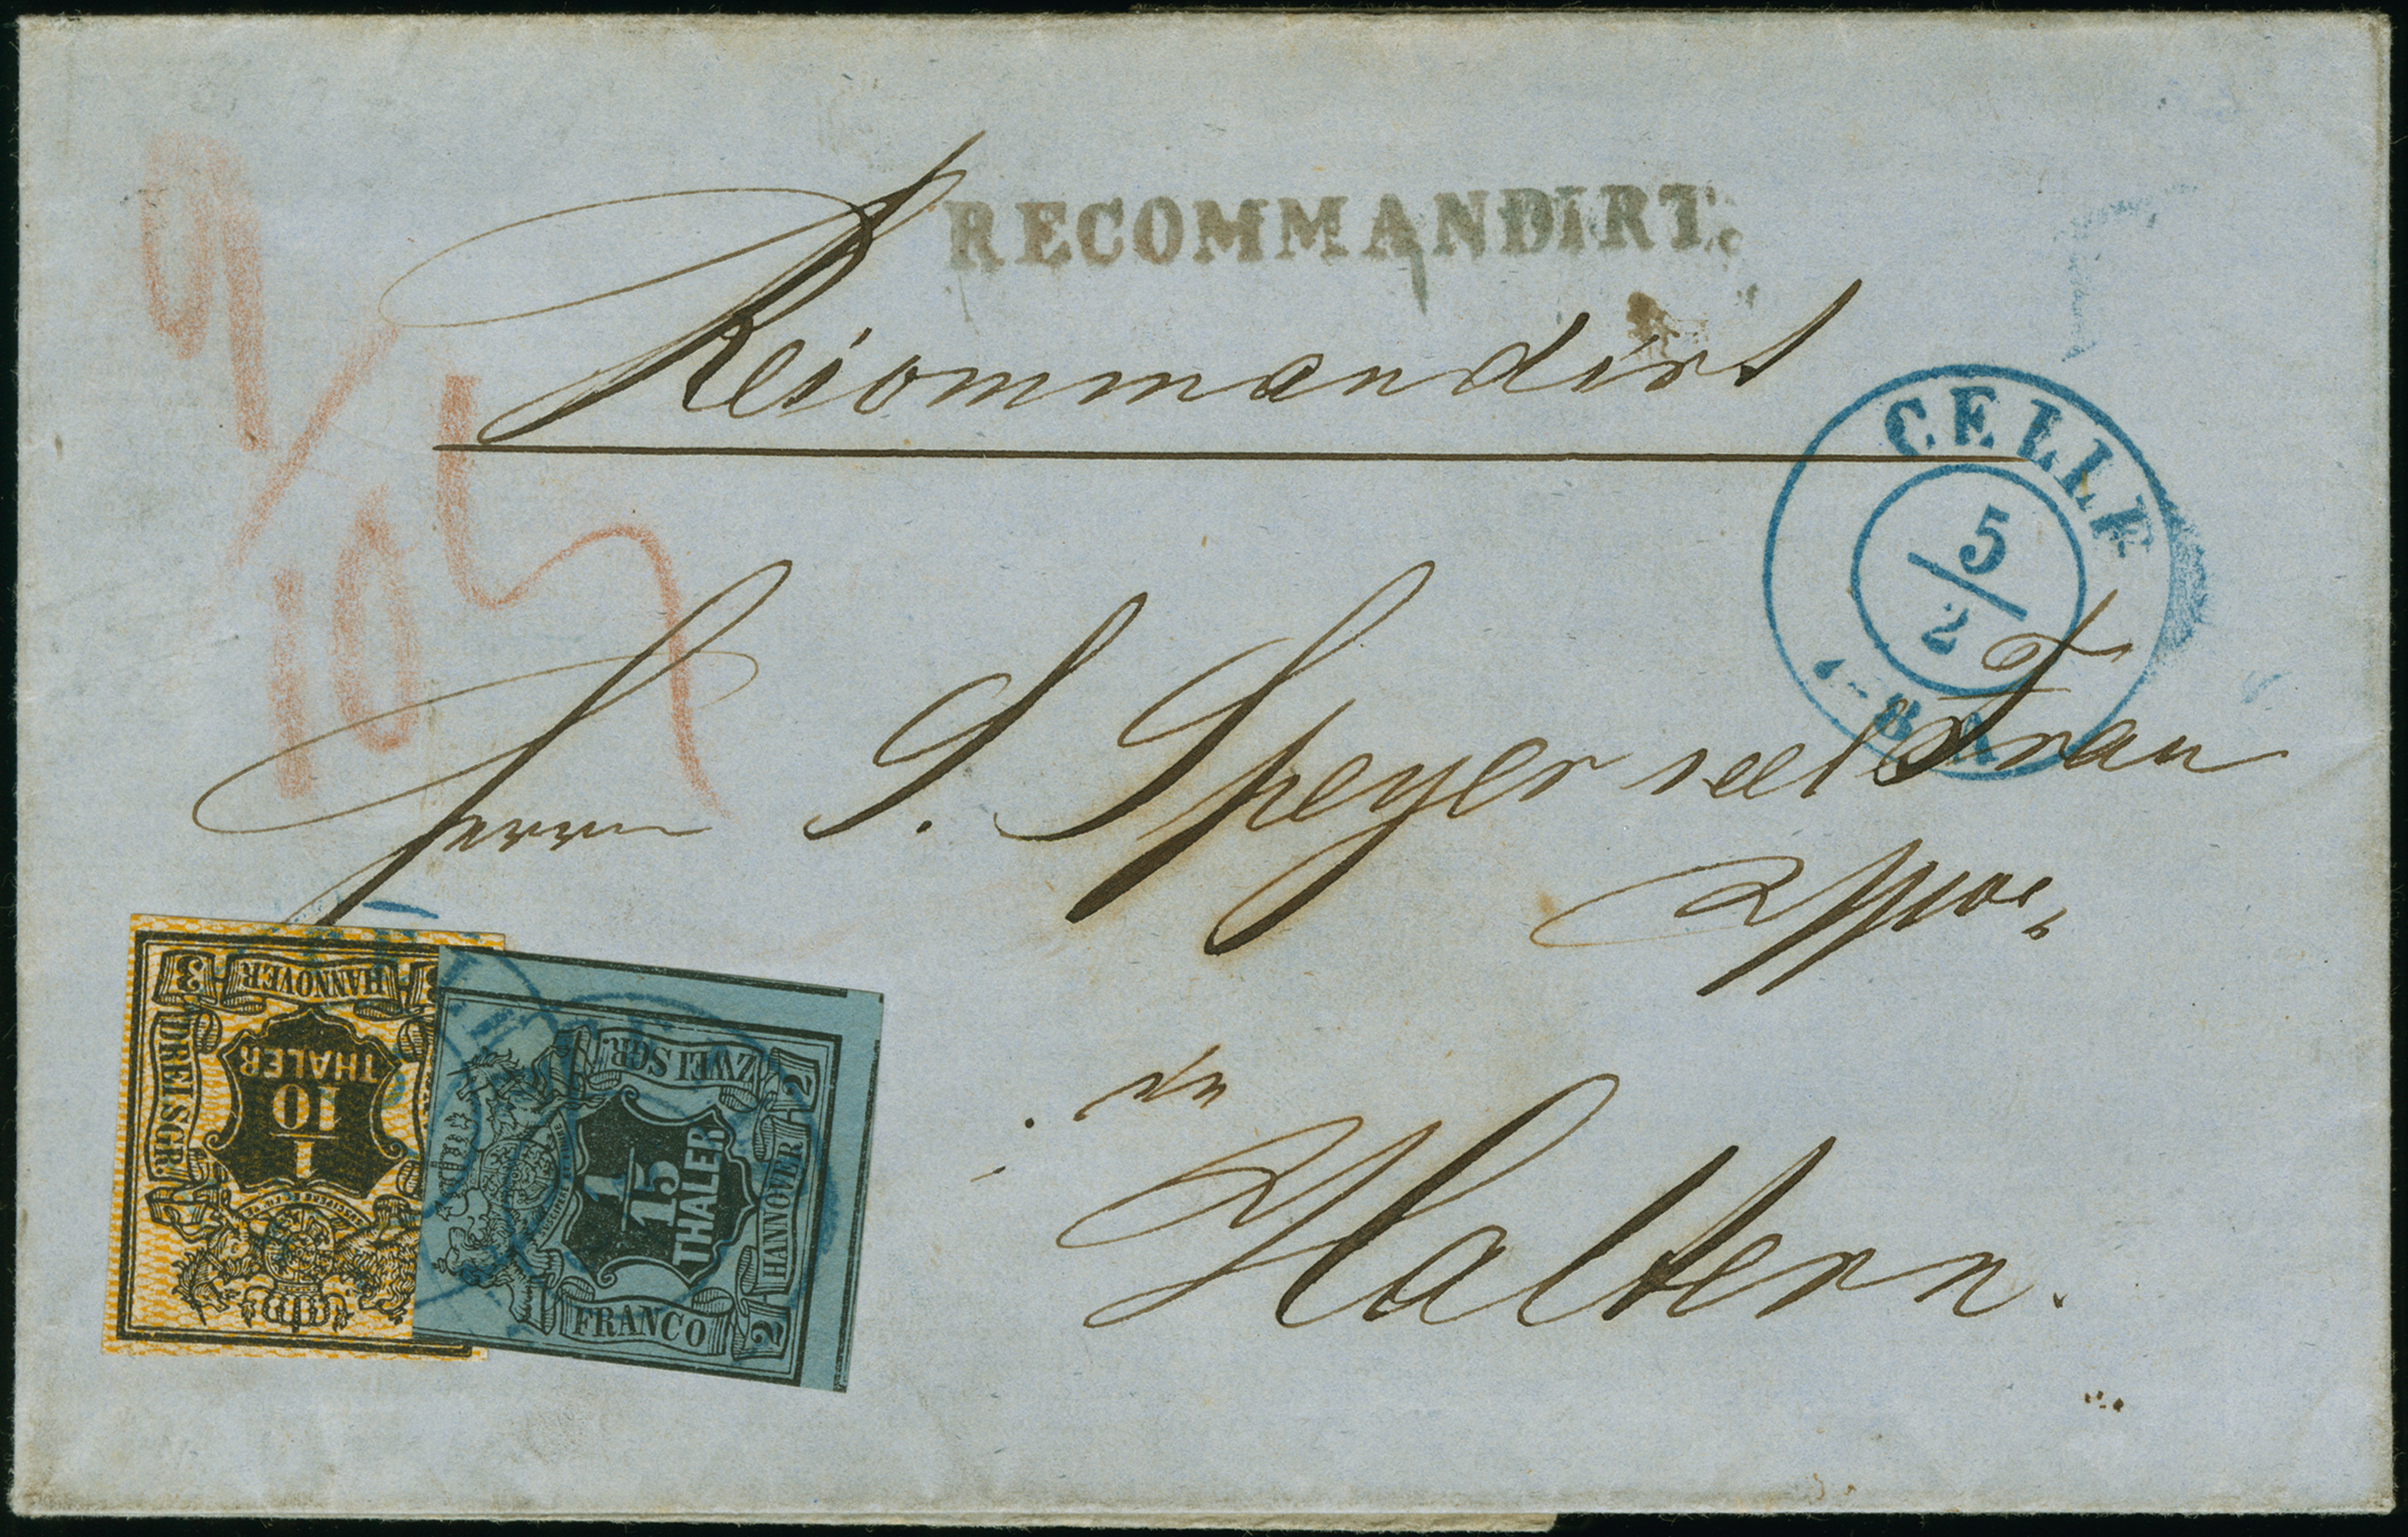 RECOMMANDIRT.
Recommandirt
9/
105
CELLE
5/2
7-8 A
Herrn S. Speyer sel Frau
Wwe,
in
Haltern.
3 HANNOVER 3
DREI SGR.
1/10
THALER
ZWEI SGR.
2 HANNOVER 2
1/15
THALER
FRANCO